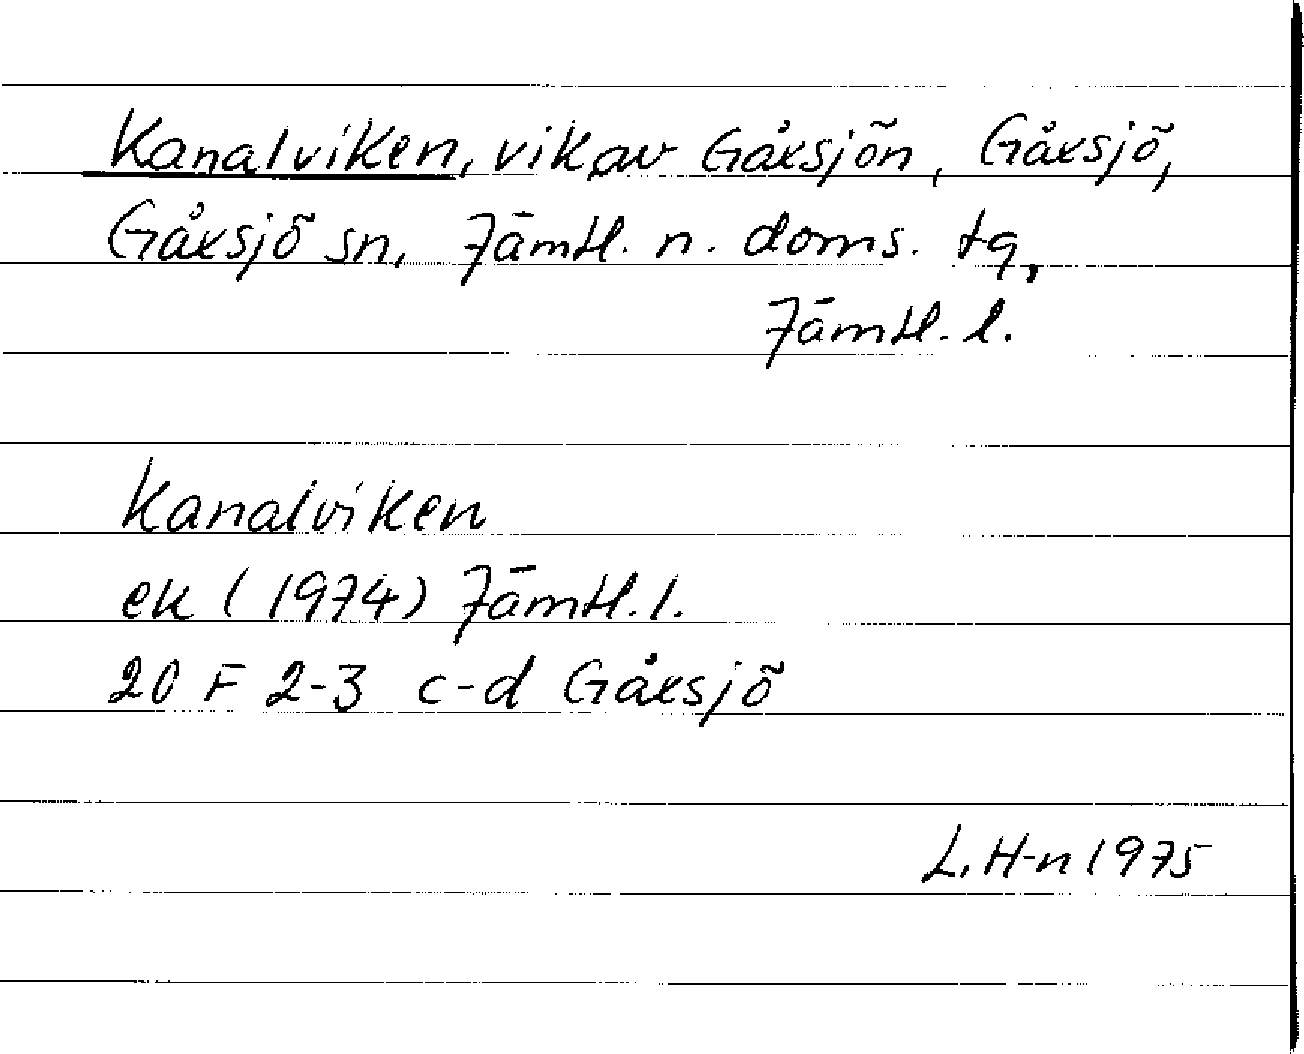 Kanalviken, vik av Gåxsjön, Gåxsjö,
Gåxsjö sn, Jämtl. n. doms. tg,
Jämtl. l.
Kanalviken
ek (1974) Jämtl. l.
20 F 2-3 c-d Gåxsjö
L. H-n 1975